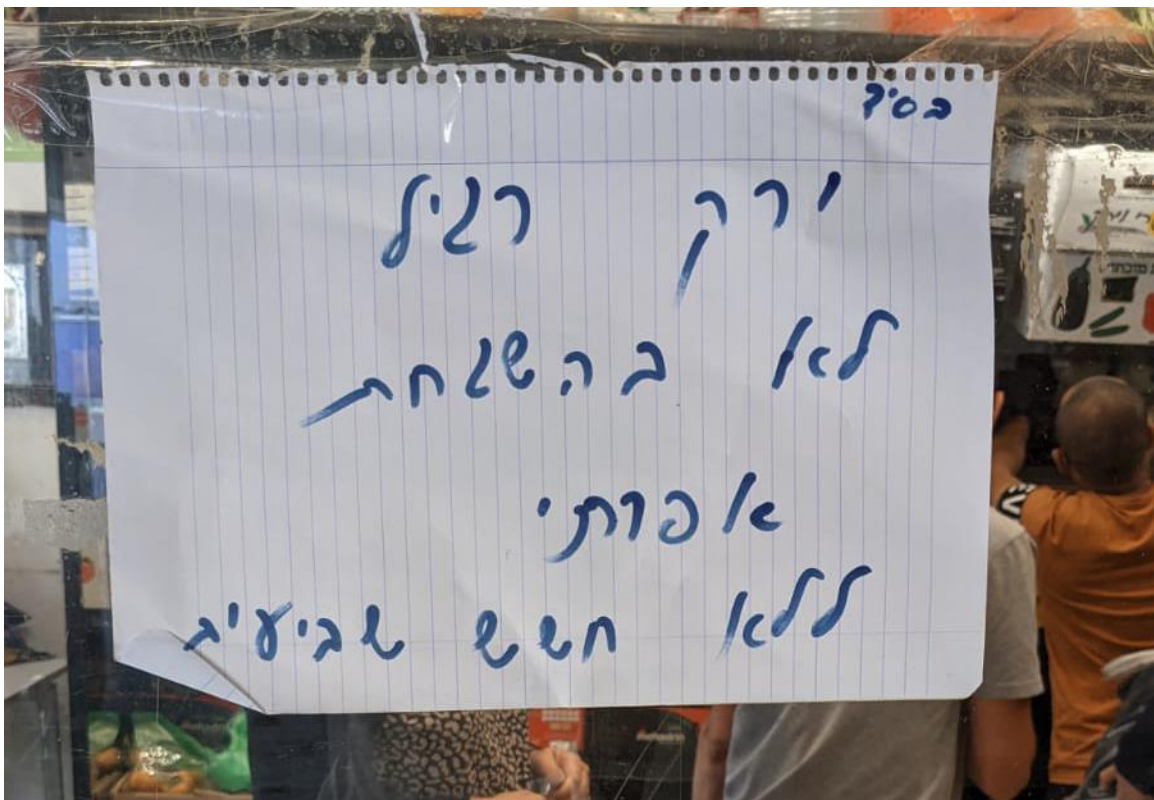 בס״ד
ירק רגיל
לא בהשגחת
אפרתי
ללא חשש שביעית